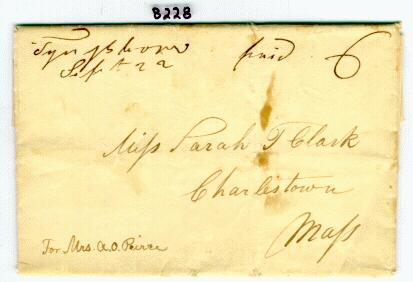 B228
Tyngsboro
Sept 22
paid 6
Miss Sarah T Clark
Charlestown
Mass
For Mrs. A.O. Peirce